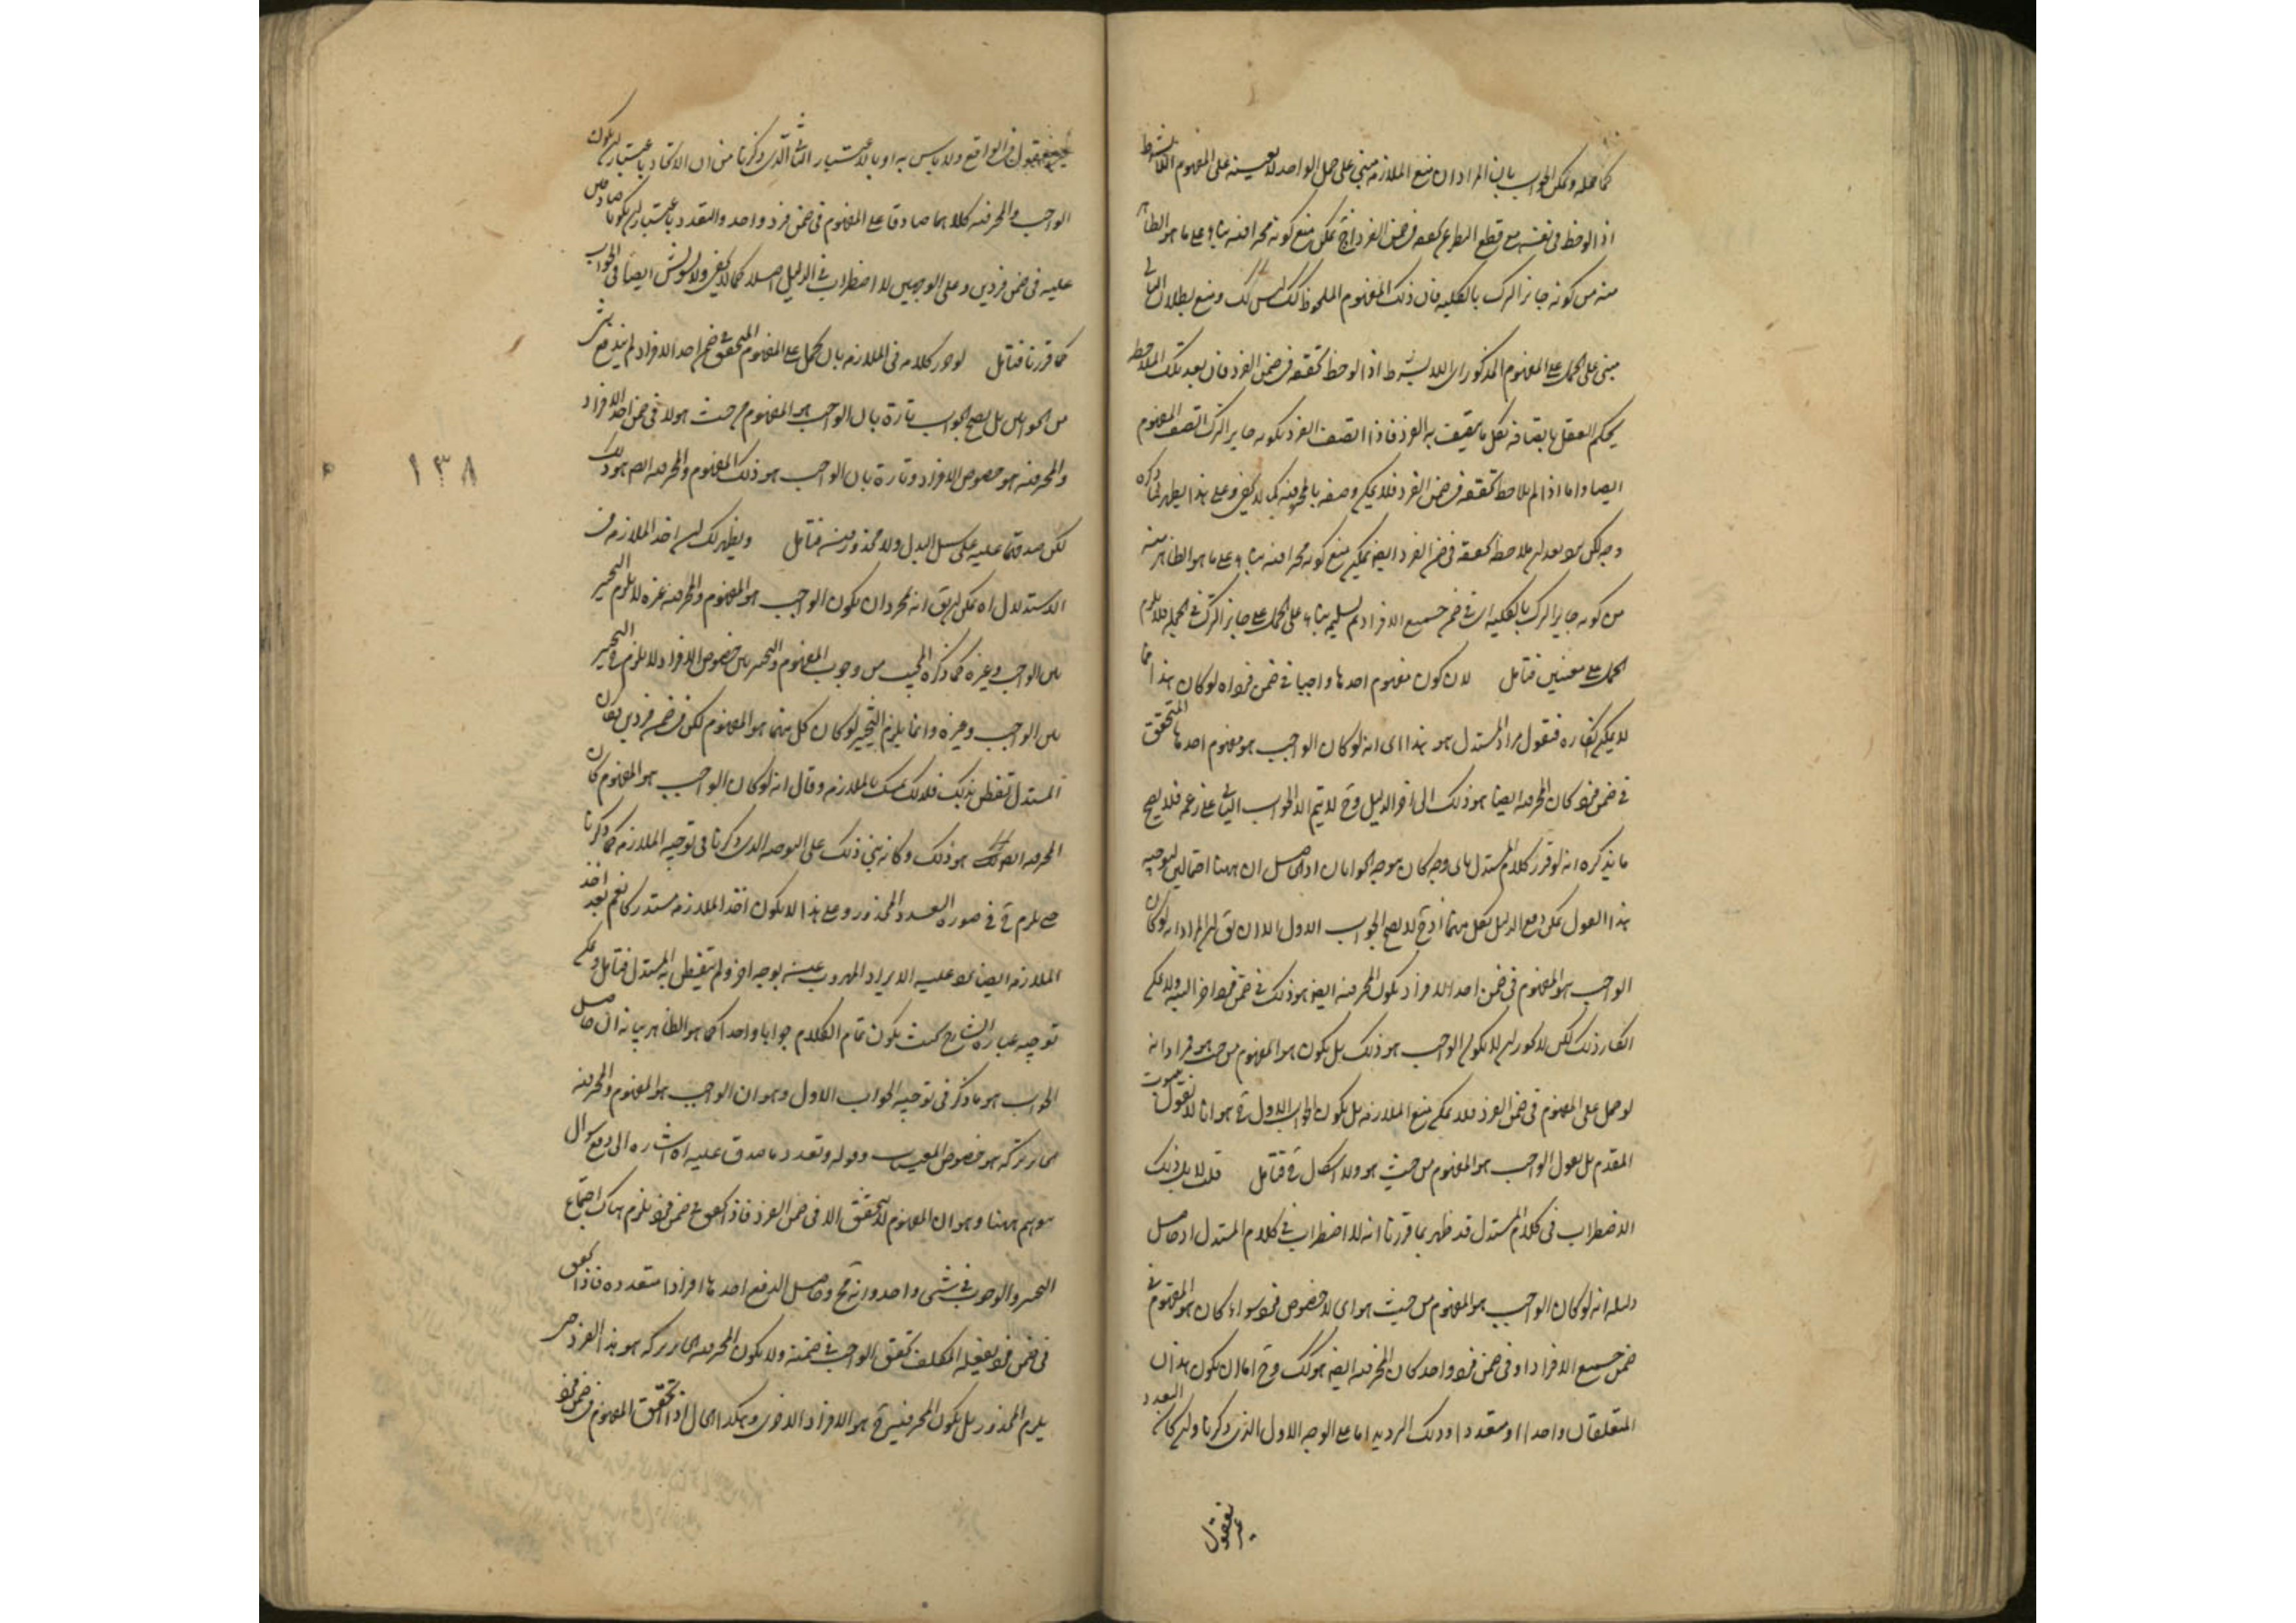 كما حمله ويمكن الجواب بان المراد ان منع الملازمة مبني على حمل الواحد لا بعينه على المفهوم اللابشرط
اذا لوحظ في نفسه مع قطع النظر عن تحققه في ضمن الفرد اذ ح يمكن منع كونه محرما فيه بناء على ما هو الظاهر
منه من كونه جايز الترك بالكلية فان ذلك المفهوم الملحوظ كك ليس كك ومنع بطلان التالي
مبني على الحمل على المفهوم المذكور اي اللابشرط اذا لوحظ تحققه في ضمن الفرد فان بعد تلك الملاحظة
يحكم العقل باتصافه بكل ما يتصف به الفرد فاذا اتصف الفرد بكونه جايز الترك اتصف المفهوم
ايضا واما اذا لم يلاحظ تحققه في ضمن الفرد فلا يمكن وصفه بالمخير فيه كما لا يخفى وعلى هذا يظهر لما ذكره
وجه لكن بعد ان ملاحظة تحققه في ضمن الفرد ايضا يمكن منع كونه مخيرا فيه بناء على ما هو الظاهر منه
من كونه جايز الترك بالكلية اي في ضمن جميع الافراد ثم تسليمه بناء على الحمل على جايز الترك في الجملة فلا يلزم
الحمل على معنيين فتامل لان كون مفهوم احدها واجبا في ضمن فرد اه لو كان هذا مما
لا يمكن انكاره فنقول مراد المستدل هو هذا اي انه لو كان الواجب هو مفهوم احدها المتحقق
في ضمن فرد كان المخير فيه ايضا هو ذلك الى اخر الدليل وح لا يتم الا الجواب الثاني على زعمه فلا يصح
ما يذكره انه لو قرر كلام المستدل باي وجه كان يتوجه الجوابان اذ الحاصل ان ههنا احتمالين لتوجيه
هذا القول يمكن دفع الدليل بكل منهما اذ ح لا يصح الجواب الاول الا ان يق ان المراد انه لو كان
الواجب هو المفهوم في ضمن احد الافراد يكون المخير فيه ايضا هو ذلك في ضمن فرد اخر البتة ولا يمكن
انكار ذلك لكن لا يكون الواجب هو ذلك بل يكون هو المفهوم من حيث هو مراده انه
لو حمل على المفهوم في ضمن الفرد فلا يمكن منع الملازمة بل يكون الجواب الاول ح هو انا لا نقول بثبوت
المقدم بل نقول الواجب هو المفهوم من حيث هو ولا اشكال ح فتامل قلت لا بل ذلك
الاضطراب في كلام المستدل قد ظهر بما قررنا انه لا اضطراب في كلام المستدل اذ حاصل
دليله انه لو كان الواجب هو المفهوم من حيث هو اي لا خصوص فرد سواء كان هو المفهوم في
ضمن جميع الافراد او في ضمن فرد واحد كان المخير فيه ايضا هو كك وح اما ان يكون هذان
المتعلقان واحدا او متعددا وذلك الترديد اما على الوجه الاول الذي ذكرنا وان كان التعدد
غير معقول
غير معقول في الواقع ولا باس به او بالاعتبار الثاني الذي ذكرنا من ان الاتحاد باعتبار ان يكون
الواجب والمخير فيه كلاهما صادقا على المفهوم في ضمن فرد واحد والتعدد باعتبار ان يكونا صادقين
عليه في ضمن فردين وعلى الوجهين لا اضطراب في الدليل اصلا كما لا يخفى ولا تشويش ايضا في الجواب
كما قررنا فتامل لو جوز كلامه في الملازمة بان يحمل على المفهوم المتحقق في ضمن احد الافراد لم يندفع شيء
من الجوابين بل يصح الجواب تارة بان الواجب هو المفهوم من حيث هو لا في ضمن احد الافراد
والمخير فيه هو خصوص الافراد وتارة بان الواجب هو ذلك المفهوم والمخير فيه ايضا هو ذلك
لكن صدقهما عليه على سبيل البدل ولا محذور فيه فتامل ويظهر لك ان اخذ الملازمة في
الاستدلال اه يمكن ان يق انه بمجرد ان يكون الواجب هو المفهوم والمخير فيه غيره لا يلزم التخيير
بين الواجب وغيره كما ذكره المجيب من وجوب المفهوم والتخيير بين خصوص الافراد لا يلزم التخيير
بين الواجب وغيره وانما يلزم التخيير لو كان كل منهما هو المفهوم لكن في ضمن فردين فكان
المستدل تفطن بذلك فلذلك تمسك بالملازمة وقال انه لو كان الواجب هو المفهوم كان
المخير فيه ايضا هو ذلك وكانه بني ذلك على الوجه الذي ذكرنا في توجيه الملازمة كما ذكرنا
حتى يلزم ح في صورة التعدد المحذور وعلى هذا لا يكون اخذ الملازمة مستدركا نعم بعد اخذ
الملازمة ايضا يرد عليه الايراد المهروب عنه بوجه اخر ولم يتفطن به المستدل فتامل ويمكن
توجيه عبارة الشارح بحيث يكون تمام الكلام جوابا واحدا كما هو الظاهر بيانه ان حاصل
الجواب هو ما ذكر في توجيه الجواب الاول وهو ان الواجب هو المفهوم والمخير فيه
الجايز تركه هو خصوص المعينات وقوله وتعدد ما صدق عليه اه اشارة الى دفع سوال
يتوهم ههنا وهو ان المفهوم لا يتحقق الا في ضمن الفرد فاذا تحقق في ضمن فرد يلزم هناك اجتماع
التخيير والوجوب في شيء واحد وانه مح وحاصل الدفع احدها افرادا متعددة فاذا تحقق
في ضمن فرد يفعله المكلف تحقق الواجب في ضمنه ولا يكون المخير فيه الجايز تركه هو هذا الفرد حتى
يلزم المحذور بل يكون المخير فيه ح هو الافراد الاخرى وهكذا الحال اذا تحقق المفهوم في ضمن فرد
١٣٨